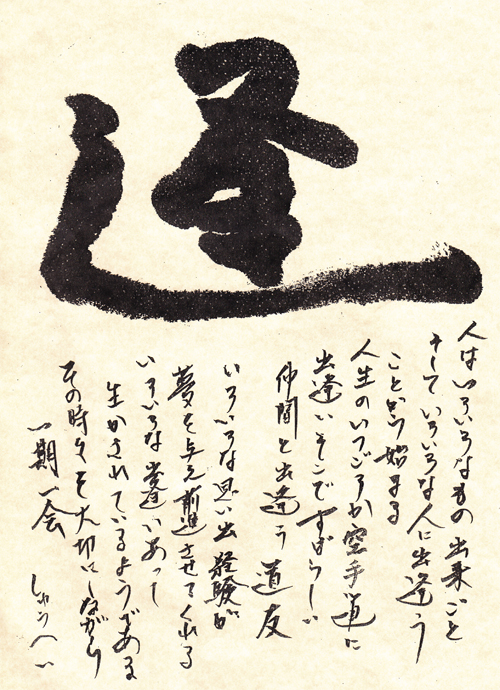 逢
人はいろいろなもの 出来ごと
そして いろいろな人に出逢う
ことから始まる
人生のいつごろか空手道に
出逢い そこですばらしい
仲間と出逢う 道友
いろいろな思い出 経験が
夢を与え前進させてくれる
いろいろな出逢いあって
生かされているようである
その時々を大切にしながら
一期一会 しゅうへい